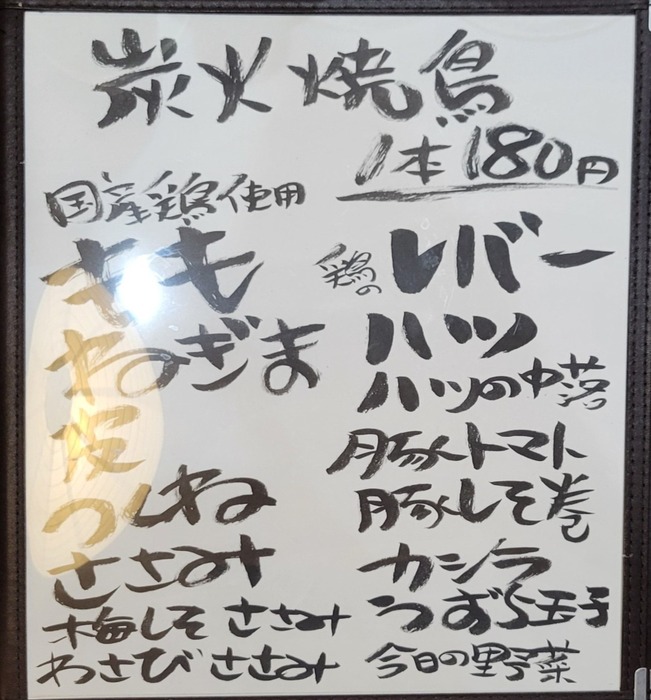 炭火焼鳥
1本180円
国産鶏使用
もも
ねぎま
皮
つくね
ささみ
梅しそささみ
わさびささみ
鶏のレバー
ハツ
ハツの中落
豚トマト
豚しそ巻
カシラ
うずら玉子
今日の野菜